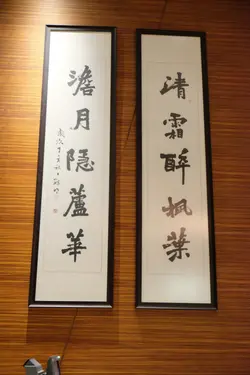 清霜醉枫葉
澹月隱蘆華